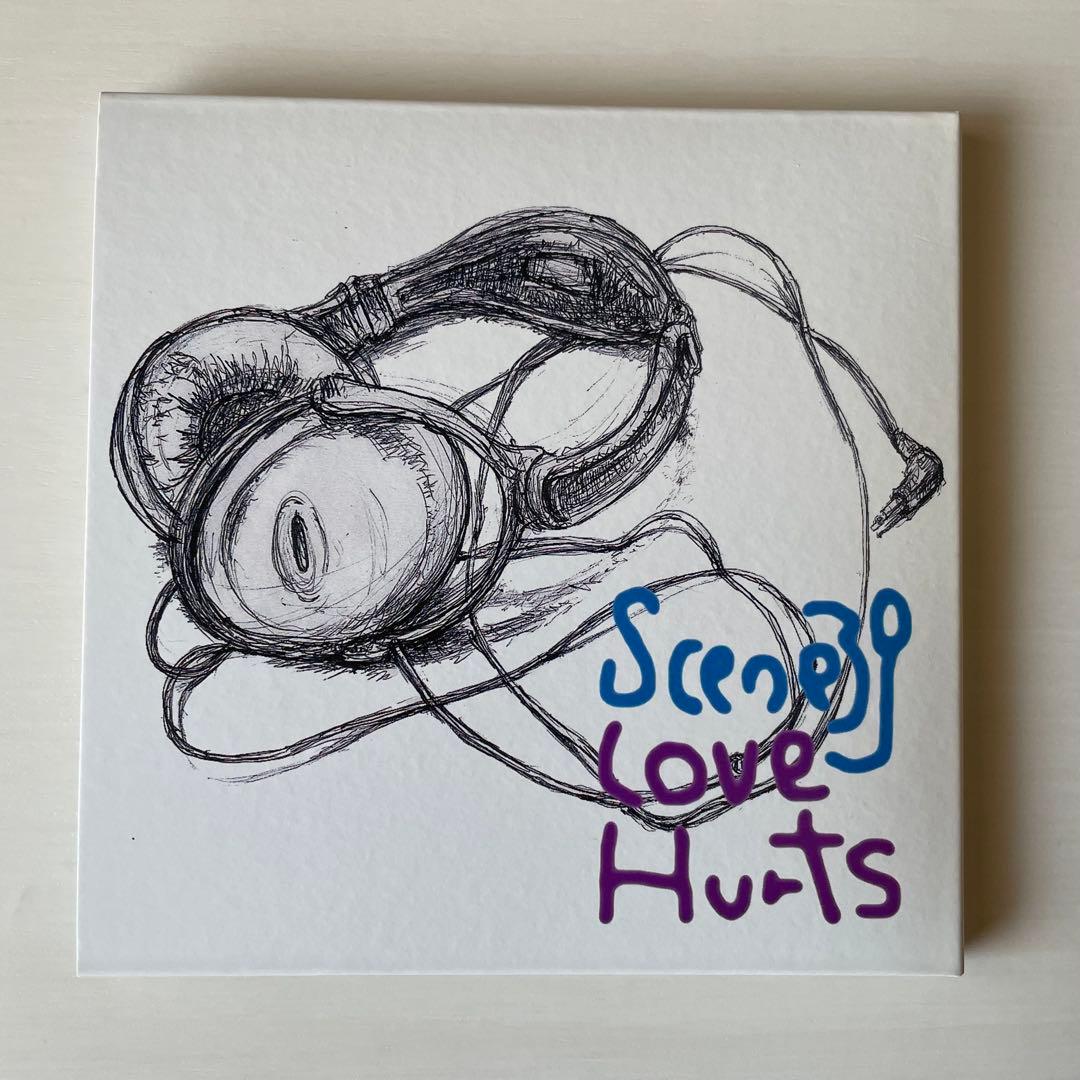 Scene39
Love
Hurts